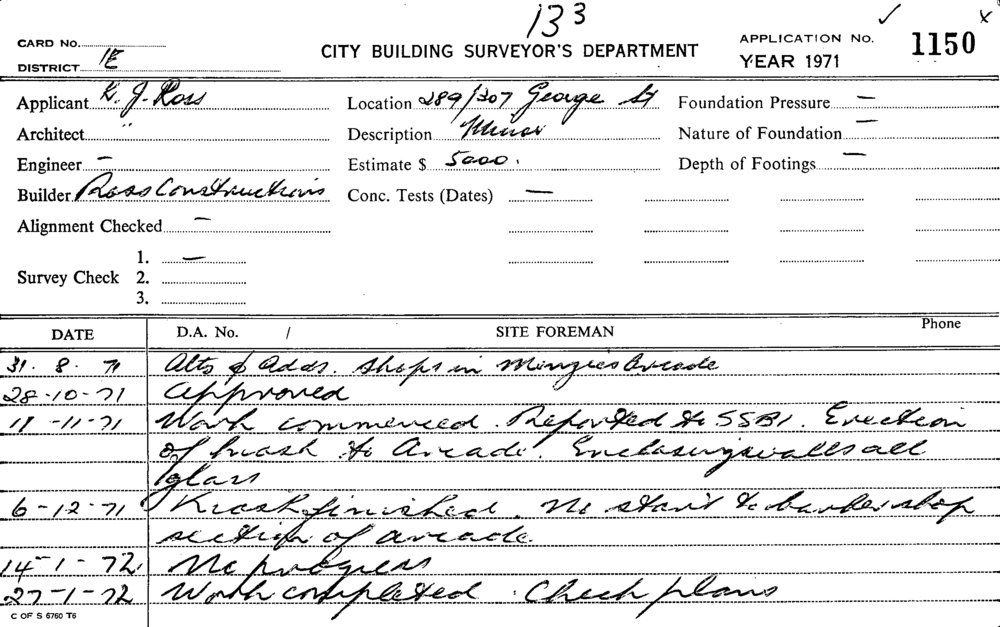 133
CARD No.
CITY BUILDING SURVEYOR'S DEPARTMENT
APPLICATION No. 1150
DISTRICT 1E
YEAR 1971
Applicant K. J. Ross
Location 289/307 George St
Foundation Pressure —
Architect "
Description Minor
Nature of Foundation —
Engineer —
Estimate $ 5000.
Depth of Footings —
Builder Ross Constructions
Conc. Tests (Dates) —
Alignment Checked —
Survey Check 1. —
2.
3.
DATE D.A. No. / SITE FOREMAN Phone
31. 8. 71 Alts & Adds. shops in Menzies Arcade
28-10-71 Approved
11-11-71 Work commenced. Reported to SSBI. Erection
of kiosk to Arcade. Enclosing walls all
glass
6-12-71 Kiosk finished. No start to barber shop
section of arcade.
14-1-72 No progress
27-1-72 Work completed. Check plans
C OF S 5760 T6